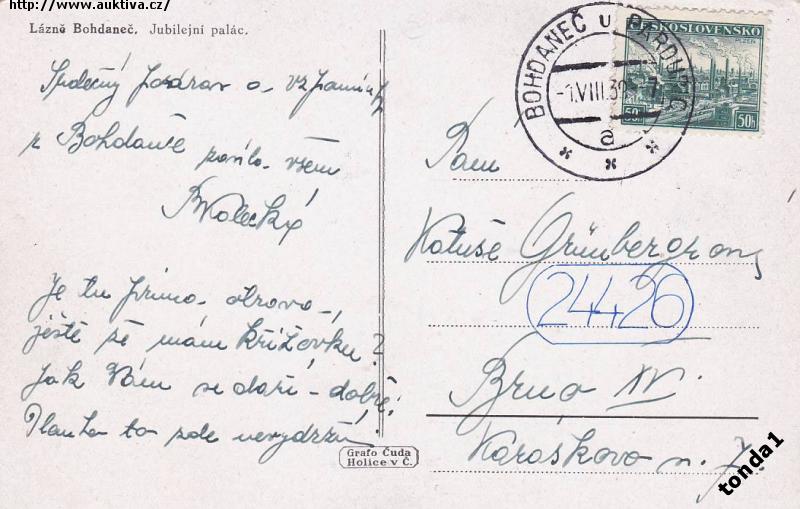 http://www.auktiva.cz/
Lázně Bohdaneč. Jubilejní palác.
Srdečný pozdrav a vzpomínky
z Bohdanče posílá všem
Je tu přímo otrava,
ještě že mám křížovku!
Jak Vám se daří - dobře!
Dlouho to zde nevydržím!
Grafo Čuda
Holice v Č.
BOHDANEČ u PARDUBIC
-1.VIII.39-7
a
ČESKOSLOVENSKO
PLZEŇ
50h 50h
Pani
Grünbergrova
24426
Brno XV.
Karáskovo n.
tonda1